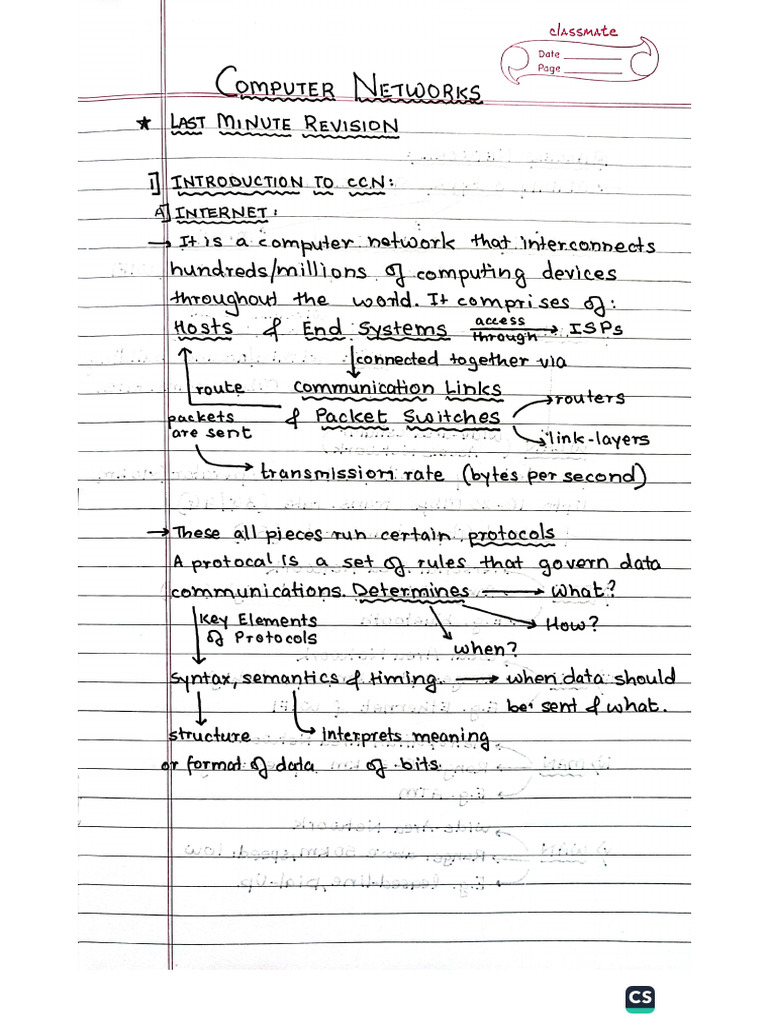 classmate
Date
Page
COMPUTER NETWORKS
★ LAST MINUTE REVISION
1] INTRODUCTION TO CCN:
A] INTERNET:
→ It is a computer network that interconnects
hundreds/millions of computing devices
throughout the world. It comprises of:
Hosts & End Systems access through → ISPs
connected together via
route communication Links
packets are sent & Packet Switches → routers
→ link-layers
→ transmission rate (bytes per second)
→ These all pieces run certain protocols
A protocal is a set of rules that govern data
communications. Determines → What?
Key Elements of Protocols → How?
when?
syntax, semantics & timing. → when data should
be sent & what.
structure → interprets meaning
or format of data of bits.
CS